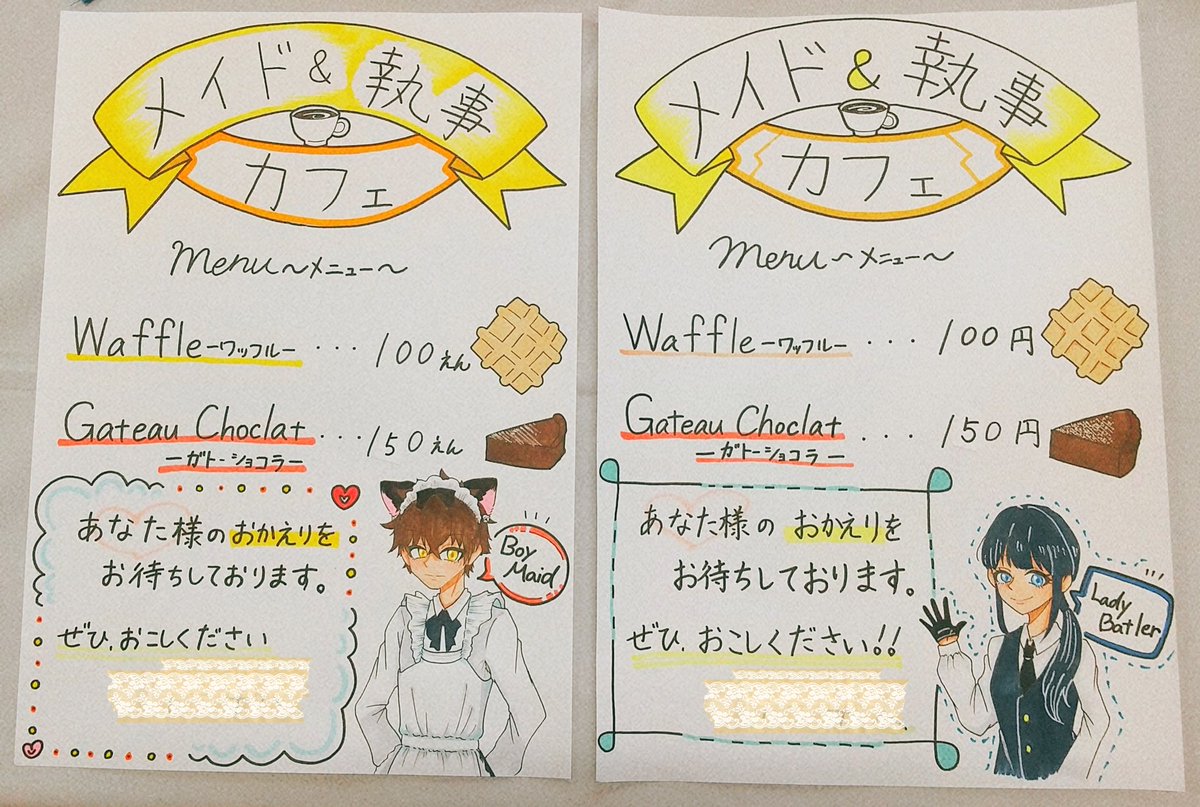 メイド&執事
カフェ
Menu〜メニュー〜
Waffle−ワッフル− ・・・100えん
Gateau Choclat ・・・150えん
−ガトーショコラ−
あなた様のおかえりを
お待ちしております。
ぜひ、おこしください
Boy
Maid
メイド&執事
カフェ
Menu〜メニュー〜
Waffle−ワッフル− ・・・100円
Gateau Choclat ・・・150円
−ガトーショコラ−
あなた様のおかえりを
お待ちしております。
ぜひ、おこしください!!
Lady
Batler